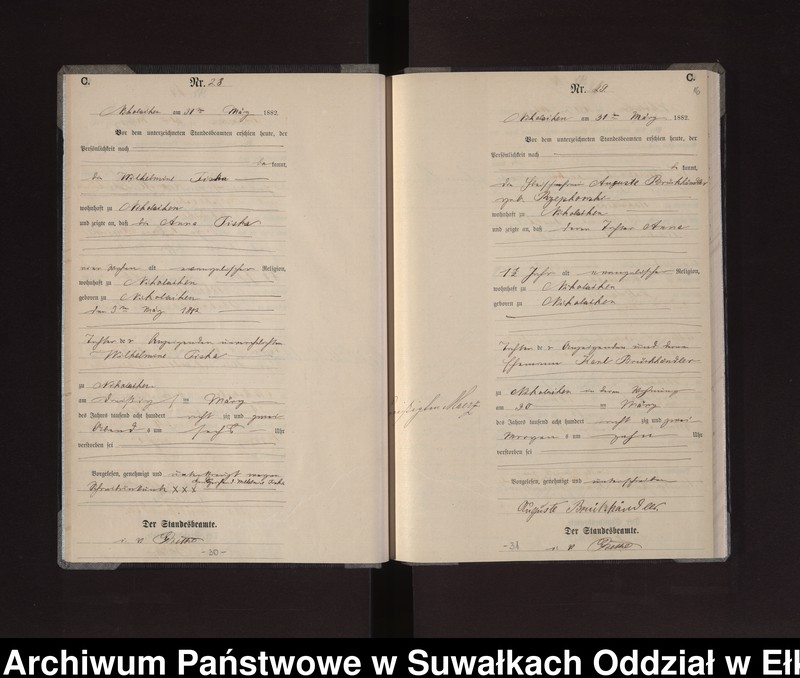 C.
Nr. 28
Nikolaiken am 31ten März 1882
Vor dem unterzeichneten Standesbeamten erschien heute, der
Persönlichkeit nach
kannt,
die Wilhelmine
wohnhaft zu Nikolaiken
und zeigte an, daß die Anna
alt evangelischer Religion,
wohnhaft zu Nikolaiken
geboren zu Nikolaiken
den 3ten März 1882
Tochter der Anzeigenden unverehelichten
Wilhelmine
zu Nikolaiken
am dreißig sten März
des Jahres tausend acht hundert acht zig und zwei
Abends um sechs Uhr
verstorben sei
Vorgelesen, genehmigt und unterkreuzt wegen
XXX
Der Standesbeamte.
i. V.
- 30 -
C.
Nr. 29
Nikolaiken am 31ten März 1882.
Vor dem unterzeichneten Standesbeamten erschien heute, der
Persönlichkeit nach
be kannt,
die Auguste Bruckhändler
geb.
wohnhaft zu Nikolaiken
und zeigte an, daß deren Tochter Anna
1½ Jahr alt evangelischer Religion,
wohnhaft zu Nikolaiken
geboren zu Nikolaiken
Tochter der Anzeigenden und deren
Ehemann Karl Bruckhändler
zu Nikolaiken in deren Wohnung
am 30 ten März
des Jahres tausend acht hundert acht zig und zwei
Morgens um zehn Uhr
verstorben sei
Vorgelesen, genehmigt und unterschrieben
Auguste Bruckhändler.
Der Standesbeamte.
- 31
i. V.
Archiwum Państwowe w Suwałkach Oddział w Ełk